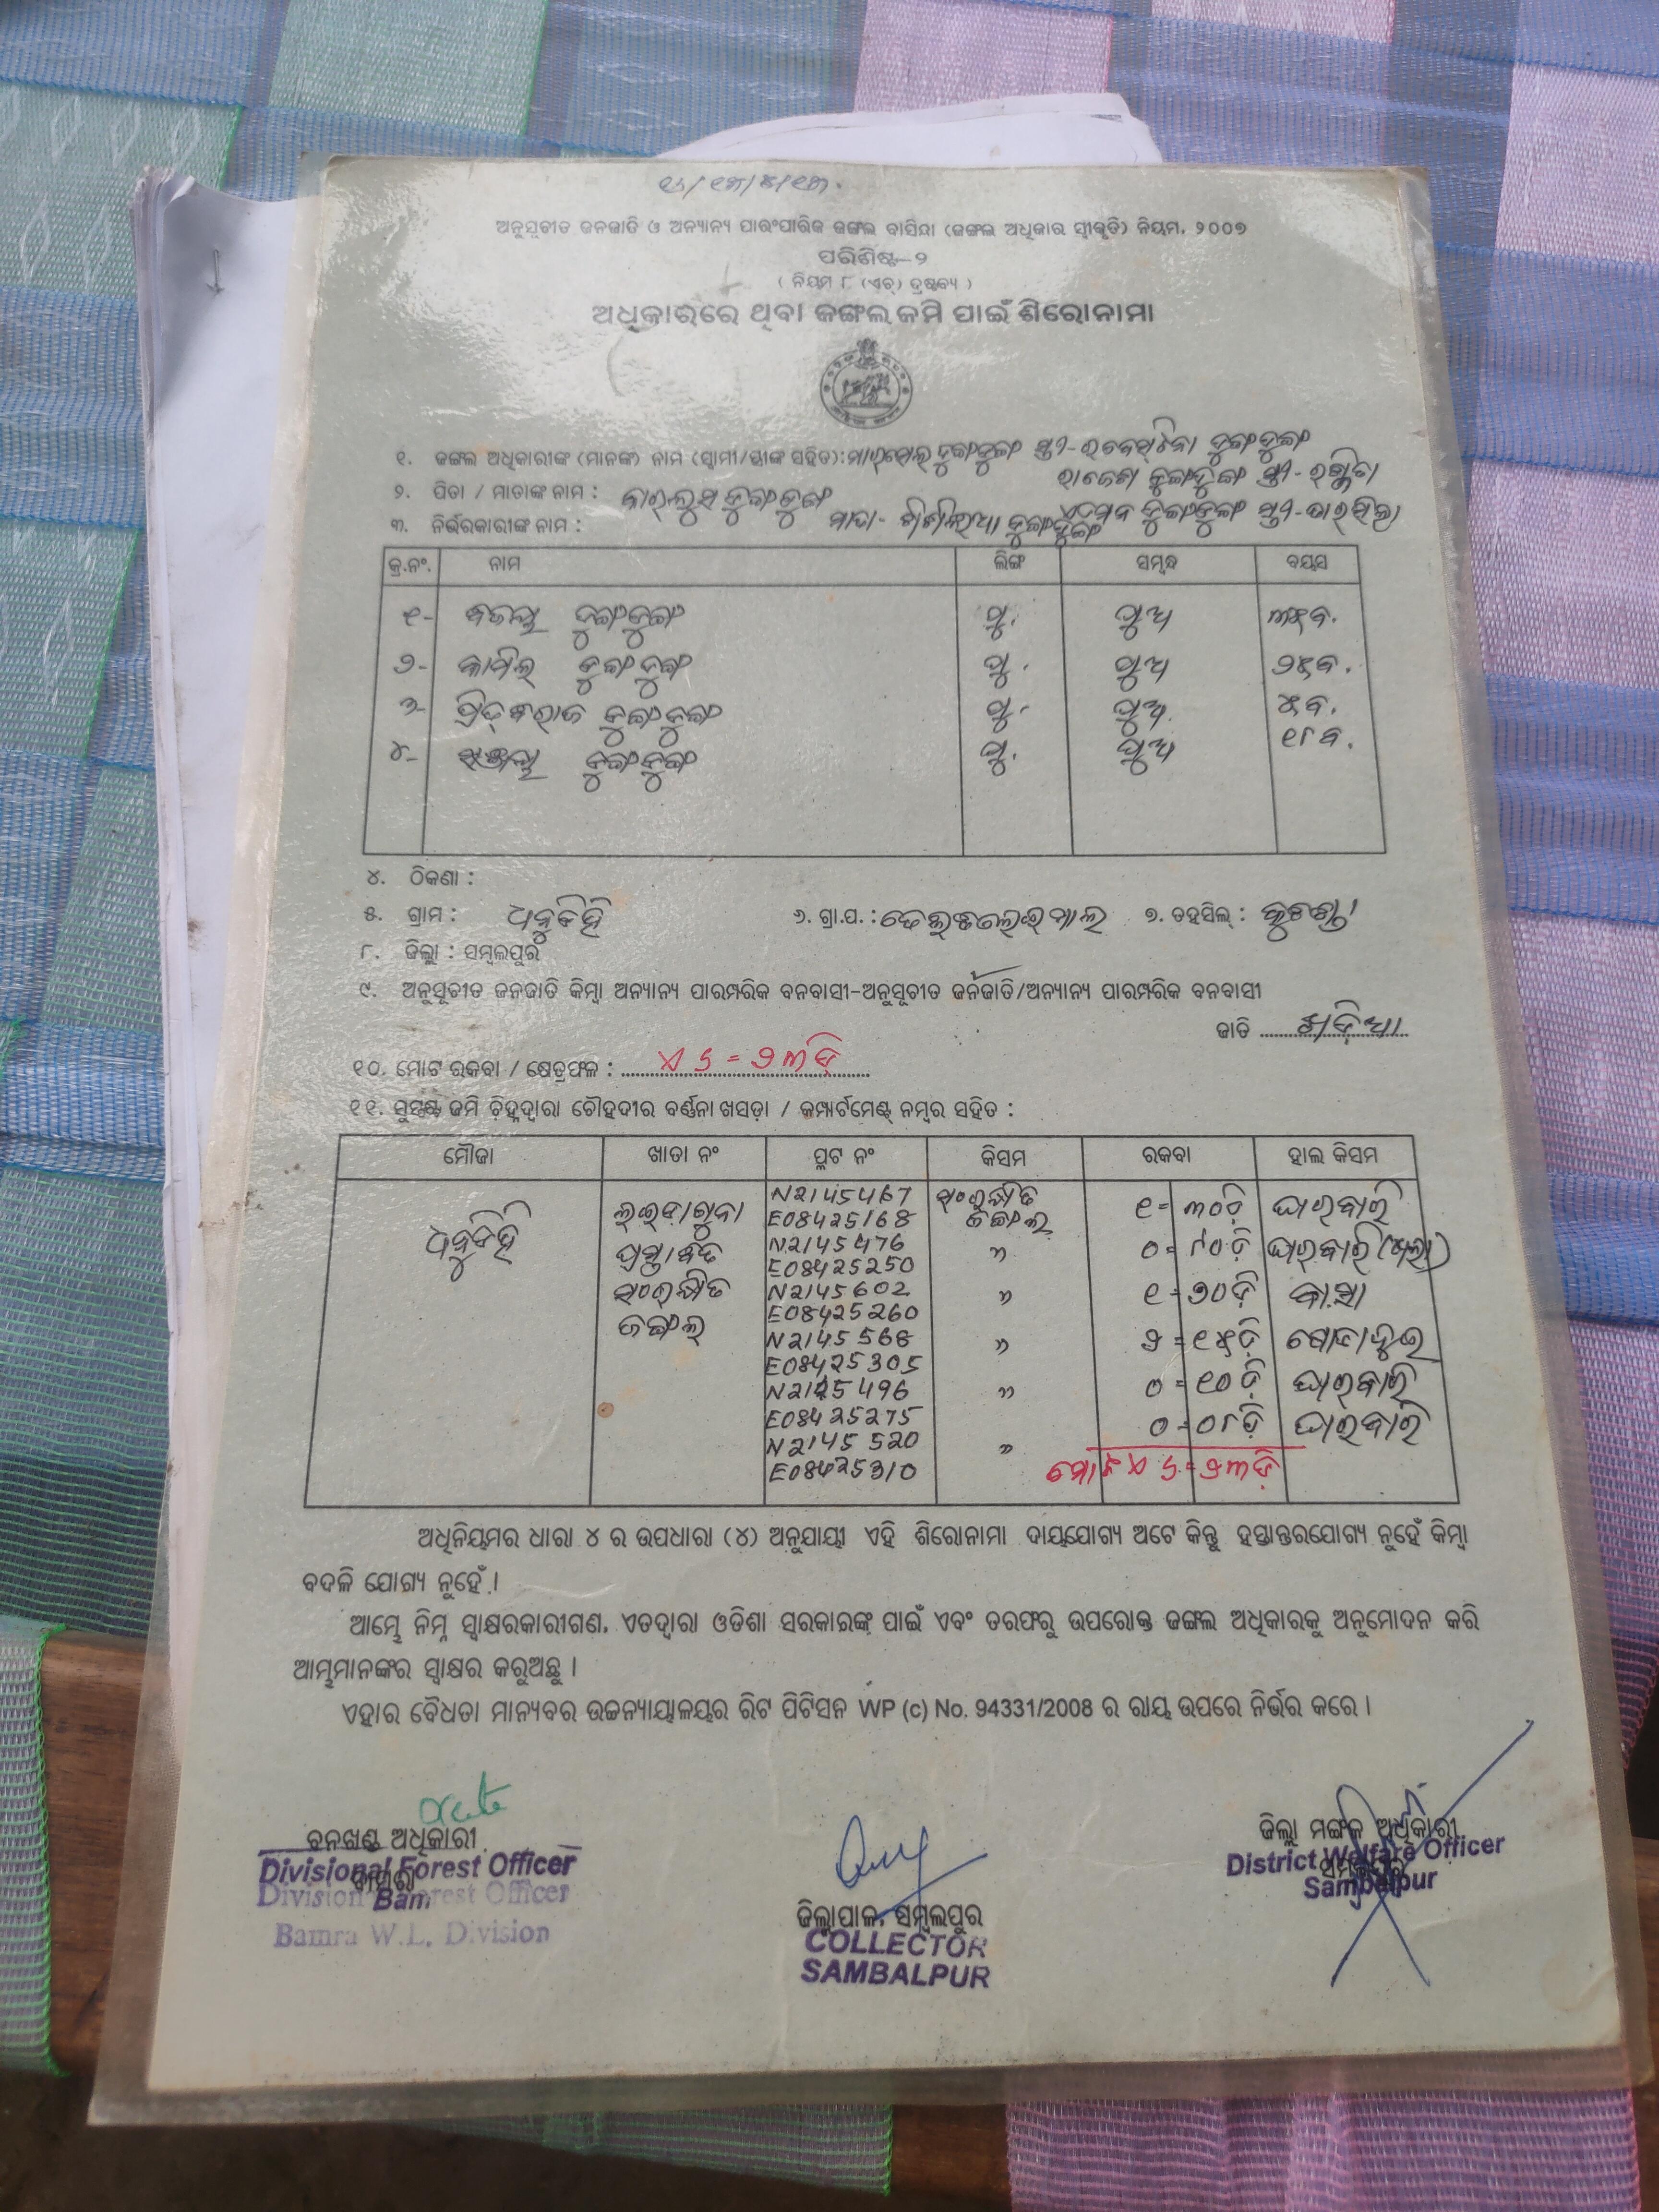 ଅନୁସୂଚୀତ ଜନଜାତି ଓ ଅନ୍ୟାନ୍ୟ ପାରଂପାରିକ ଜଙ୍ଗଲ ବାସିନ୍ଦା (ଜଙ୍ଗଲ ଅଧିକାର ସ୍ୱୀକୃତି) ନିୟମ, ୨୦୦୭
ପରିଶିଷ୍ଟ-୨
( ନିୟମ ୮ (ଏଚ୍) ଦ୍ରଷ୍ଟବ୍ୟ )
ଅଧିକାରରେ ଥିବା ଜଙ୍ଗଲ ଜମି ପାଇଁ ଶିରୋନାମା
୧. ଜଙ୍ଗଲ ଅଧିକାରୀଙ୍କ (ମାନଙ୍କ) ନାମ (ସ୍ୱାମୀ/ସ୍ତ୍ରୀଙ୍କ ସହିତ): ଡୁଙ୍ଗଡୁଙ୍ଗ ସ୍ତ୍ରୀ- ଡୁଙ୍ଗଡୁଙ୍ଗ
ରାଜେଶ ଡୁଙ୍ଗଡୁଙ୍ଗ ସ୍ତ୍ରୀ-
୨. ପିତା / ମାତାଙ୍କ ନାମ : ଡୁଙ୍ଗଡୁଙ୍ଗ ମାତା- ଡୁଙ୍ଗଡୁଙ୍ଗ
ଡୁଙ୍ଗଡୁଙ୍ଗ ସ୍ତ୍ରୀ-
୩. ନିର୍ଭରକାରୀଙ୍କ ନାମ :
କ୍ର.ନଂ. ନାମ ଲିଙ୍ଗ ସମ୍ବନ୍ଧ ବୟସ
୧- ଡୁଙ୍ଗଡୁଙ୍ଗ ପୁ. ପୁଅ ୩୫ବ.
୨- ଡୁଙ୍ଗଡୁଙ୍ଗ ପୁ. ପୁଅ ୨୫ବ.
୩- ଡୁଙ୍ଗଡୁଙ୍ଗ ପୁ. ପୁଅ ୫ବ.
୪- ଡୁଙ୍ଗଡୁଙ୍ଗ ପୁ. ପୁଅ ୧୮ବ.
୪. ଠିକଣା :
୫. ଗ୍ରାମ : ଧନୁଡିହି ୬. ଗ୍ରା.ପ. : ୭. ତହସିଲ୍ : କୁଚିଣ୍ଡା
୮. ଜିଲ୍ଲା : ସମ୍ବଲପୁର
୯. ଅନୁସୂଚୀତ ଜନଜାତି କିମ୍ବା ଅନ୍ୟାନ୍ୟ ପାରମ୍ପରିକ ବନବାସୀ-ଅନୁସୂଚୀତ ଜନଜାତି/ଅନ୍ୟାନ୍ୟ ପାରମ୍ପରିକ ବନବାସୀ
ଜାତି ଖଡ଼ିଆ
୧୦. ମୋଟ ରକବା / କ୍ଷେତ୍ରଫଳ : ଏ ୬ = ୨୩ଡ଼ି
୧୧. ସୁସ୍ପଷ୍ଟ ଜମି ଚିହ୍ନଦ୍ୱାରା ଚୌହଦୀର ବର୍ଣ୍ଣନା ଖସଡ଼ା / କମ୍ପାର୍ଟମେଣ୍ଟ ନମ୍ବର ସହିତ :
ମୌଜା ଖାତା ନଂ ପ୍ଳଟ ନଂ କିସମ ରକବା ହାଲ କିସମ
ଧନୁଡିହି
ପ୍ରସ୍ତାବିତ
ସଂରକ୍ଷିତ
ଜଙ୍ଗଲ୍
N2145467 ସଂରକ୍ଷିତ ୧ = ୩୦ଡ଼ି ଘରବାରି
E08425168 ଜଙ୍ଗଲ
N2145476 " ୦ = ୮୦ଡ଼ି ଘରବାରି
E08425250
N2145602 " ୧ = ୨୦ଡ଼ି
E08425260
N2145568 " ୨ = ୧୫ଡ଼ି
E08425305
N2145496 " ୦ = ୧୦ଡ଼ି ଘରବାରି
E08425275
N2145520 " ୦ = ୦୮ଡ଼ି ଘରବାରି
E08425310
ମୋଟ ଏ ୬ = ୨୩ଡ଼ି
ଅଧିନିୟମର ଧାରା ୪ ର ଉପଧାରା (୪) ଅନୁଯାୟୀ ଏହି ଶିରୋନାମା ଦାୟଯୋଗ୍ୟ ଅଟେ କିନ୍ତୁ ହସ୍ତାନ୍ତରଯୋଗ୍ୟ ନୁହେଁ କିମ୍ବା
ବଦଳି ଯୋଗ୍ୟ ନୁହେଁ ।
ଆମ୍ଭେ ନିମ୍ନ ସ୍ୱାକ୍ଷରକାରୀଗଣ, ଏତଦ୍ୱାରା ଓଡିଶା ସରକାରଙ୍କ ପାଇଁ ଏବଂ ତରଫରୁ ଉପରୋକ୍ତ ଜଙ୍ଗଲ ଅଧିକାରକୁ ଅନୁମୋଦନ କରି
ଆମ୍ଭମାନଙ୍କର ସ୍ୱାକ୍ଷର କରୁଅଛୁ ।
ଏହାର ବୈଧତା ମାନ୍ୟବର ଉଚ୍ଚନ୍ୟାୟାଳୟର ରିଟ ପିଟିସନ WP (c) No. 94331/2008 ର ରାୟ ଉପରେ ନିର୍ଭର କରେ ।
ବନଖଣ୍ଡ ଅଧିକାରୀ
ବାମରା
Divisional Forest Officer
Bam
Divisional Forest Officer
Bamra W.L. Division
ଜିଲ୍ଲାପାଳ, ସମ୍ବଲପୁର
COLLECTOR
SAMBALPUR
ଜିଲ୍ଲା ମଙ୍ଗଳ ଅଧିକାରୀ
ସମ୍ବଲପୁର
District Welfare Officer
Sambalpur